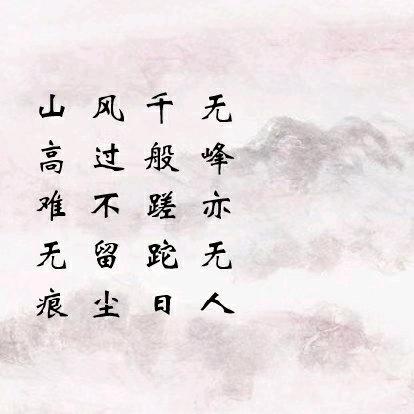 山高难无痕
风过不留尘
千般蹉跎日
无峰亦无人